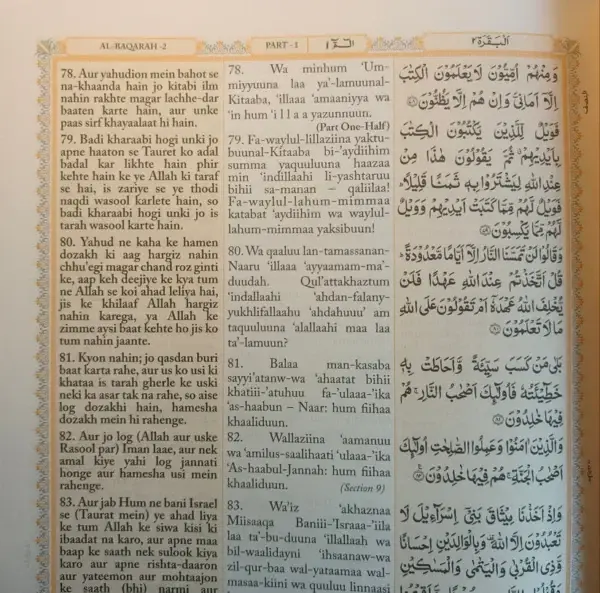 AL-BAQARAH -2
PART - 1
الٓمّٓ ١
اَلْبَقَرَة ٢
78. Aur yahudion mein bahot se
na-khaanda hain jo kitabi ilm
nahin rakhte magar lachhe-dar
baaten karte hain, aur unke
paas sirf khayaalaat hi hain.
79. Badi kharaabi hogi unki jo
apne haaton se Tauret ko adal
badal kar likhte hain phir
kehte hain ke ye Allah ki taraf
se hai, is zariye se ye thodi
naqdi wasool karlete hain, so
badi kharaabi hogi unki jo is
tarah wasool karte hain.
80. Yahud ne kaha ke hamen
dozakh ki aag hargiz nahin
chhu'egi magar chand roz ginti
ke, aap keh deejiye ke kya tum
ne Allah se koi ahad leliya hai,
jis ke khilaaf Allah hargiz
nahin karega, ya Allah ke
zimme aysi baat kehte ho jis ko
tum nahin jaante.
81. Kyon nahin; jo qasdan buri
baat karta rahe, aur us ko usi ki
khataa is tarah gherle ke uski
neki ka asar tak na rahe, so aise
log dozakhi hain, hamesha
dozakh mein hi rahenge.
82. Aur jo log (Allah aur uske
Rasool par) Iman laae, aur nek
amal kiye yahi log jannati
honge aur hamesha usi mein
rahenge.
83. Aur jab Hum ne bani Israel
se (Taurat mein) ye ahad liya
ke tum Allah ke siwa kisi ki
ibaadat na karo, aur apne maa
baap ke saath nek sulook kiya
karo aur apne rishta-daaron
aur yateemon aur mohtaajon
ke saath (bhi) narmi aur
78. Wa minhum 'Um-
miyyuuna laa ya'-lamuunal-
Kitaaba, 'illaaa 'amaaniyya wa
'in hum 'illaa yazunnuun.
(Part One-Half)
79. Fa-waylul-lillaziina yaktu-
buunal-Kitaaba bi-'aydiihim
summa yaquuluuna haazaa
min 'indillaahi li-yashtaruu
bihii sa-manan – qaliilaa!
Fa-waylul-lahum-mimmaa
katabat 'aydiihim wa waylul-
lahum-mimmaa yaksibuun!
80. Wa qaaluu lan-tamassanan-
Naaru 'illaaa 'ayyaamam-ma'-
duudah. Qul'attakhaztum
'indallaahi 'ahdan-falany-
yukhlifallaahu 'ahdahuu' am
taquuluuna 'alallaahi maa laa
ta'-lamuun?
81. Balaa man-kasaba
sayyi'atanw-wa 'ahaatat bihii
khatiii-'atuhuu fa-'ulaaa-'ika
'as-haabun – Naar: hum fiihaa
khaaliduun.
82. Wallaziina 'aamanuu
wa 'amilus-saalihaati 'ulaaa-'ika
'As-haabul-Jannah: hum fiihaa
khaaliduun. (Section 9)
83. Wa'iz 'akhaznaa
Miisaaqa Baniii-'Israaa-'iila
laa ta'-bu-duuna 'illallaah wa
bil-waalidayni 'ihsaanaw-wa
zil-qur-baa wal-yataamaa wal-
masaa-kiini wa quuluu linnaasi
وَمِنْهُمْ اُمِّيُّوْنَ لَا يَعْلَمُوْنَ الْكِتٰبَ
اِلَّآ اَمَانِيَّ وَاِنْ هُمْ اِلَّا يَظُنُّوْنَ ﴿۷۸﴾
فَوَيْلٌ لِّلَّذِيْنَ يَكْتُبُوْنَ الْكِتٰبَ
بِاَيْدِيْهِمْ ثُمَّ يَقُوْلُوْنَ هٰذَا مِنْ
عِنْدِ اللّٰهِ لِيَشْتَرُوْا بِهٖ ثَمَنًا قَلِيْلًا
فَوَيْلٌ لَّهُمْ مِّمَّا كَتَبَتْ اَيْدِيْهِمْ وَوَيْلٌ
لَّهُمْ مِّمَّا يَكْسِبُوْنَ ﴿۷۹﴾
وَقَالُوْا لَنْ تَمَسَّنَا النَّارُ اِلَّآ اَيَّامًا مَّعْدُوْدَةً
قُلْ اَتَّخَذْتُمْ عِنْدَ اللّٰهِ عَهْدًا فَلَنْ
يُّخْلِفَ اللّٰهُ عَهْدَهٗٓ اَمْ تَقُوْلُوْنَ عَلَى اللّٰهِ
مَا لَا تَعْلَمُوْنَ ﴿۸۰﴾
بَلٰى مَنْ كَسَبَ سَيِّئَةً وَّاَحَاطَتْ بِهٖ
خَطِيْٓئَتُهٗ فَاُولٰٓئِكَ اَصْحٰبُ النَّارِ هُمْ
فِيْهَا خٰلِدُوْنَ ﴿۸۱﴾
وَالَّذِيْنَ اٰمَنُوْا وَعَمِلُوا الصّٰلِحٰتِ اُولٰٓئِكَ
اَصْحٰبُ الْجَنَّةِ هُمْ فِيْهَا خٰلِدُوْنَ ﴿۸۲﴾
وَاِذْ اَخَذْنَا مِيْثَاقَ بَنِيْٓ اِسْرَآءِيْلَ لَا
تَعْبُدُوْنَ اِلَّا اللّٰهَ وَبِالْوَالِدَيْنِ اِحْسَانًا
وَّذِى الْقُرْبٰى وَالْيَتٰمٰى وَالْمَسٰكِيْنِ
النصف